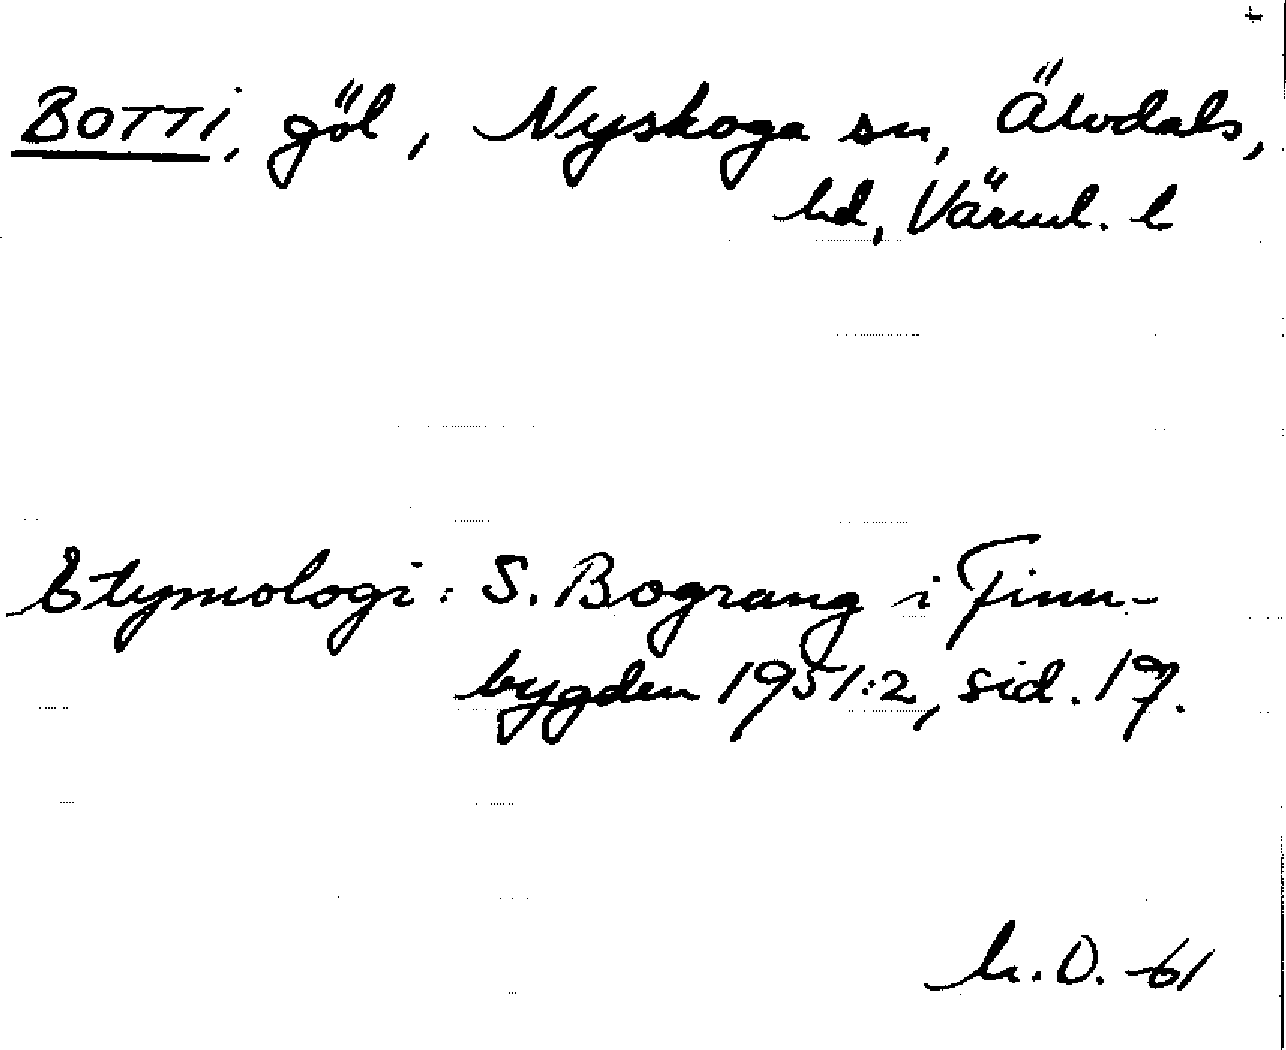 BOTTI, göl, Nyskoga sn, Älvdals,
hd, Värml. l
Etymologi: S. Bograng i Finn-
bygden 1951:2, sid. 17.
h. O. -61